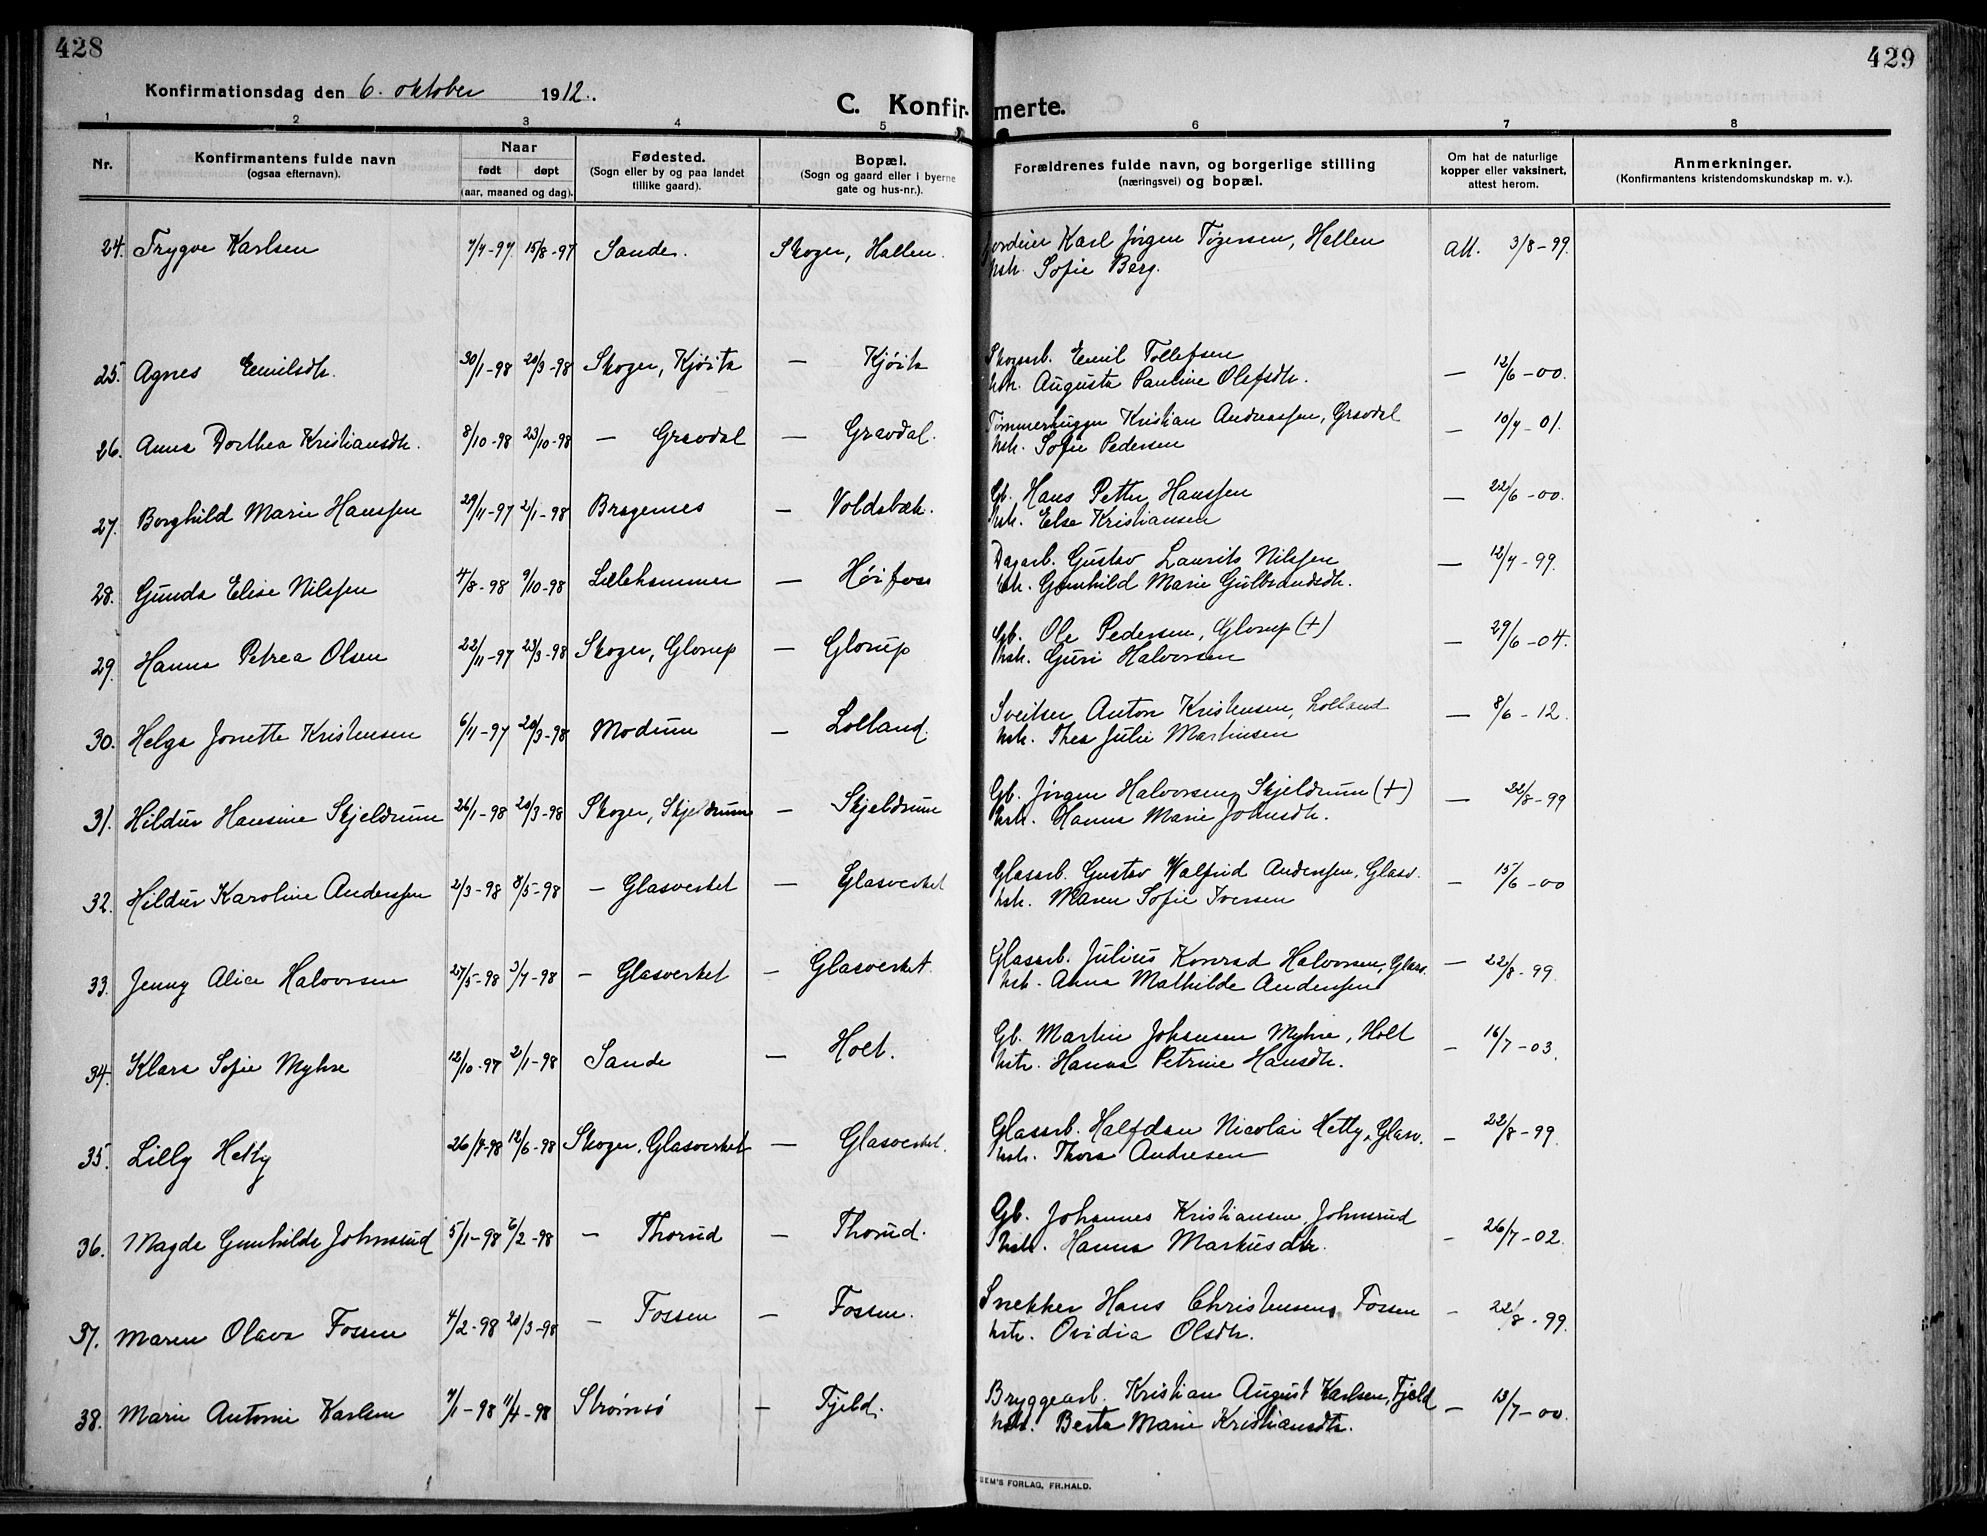 428
429
Konfirmationsdag den 6. oktober 1912.
C. Konfirmerte.
1 2 3 4 5 6 7 8
Nr.
Konfirmantens fulde navn
(ogsaa efternavn).
Naar
født døpt
(aar, maaned og dag).
Fødested.
(Sogn eller by og paa landet
tillike gaard).
Bopæl.
(Sogn og gaard eller i byerne
gate og hus-nr.).
Forældrenes fulde navn, og borgerlige stilling
(næringsvei) og bopæl.
Om hat de naturlige
kopper eller vaksinert,
attest herom.
Anmerkninger.
(Konfirmantens kristendomskundskap m. v.).
24. Trygve Karlsen 7/7-97 15/8-97 Sande. Skoger, Hallen. Jordeier Karl Jörgen Tøgersen, Hallen Att. 3/8-99.
hstr. Sofie Berg.
25. Agnes Emilsdtr. 30/1-98 20/3-98 Skoger, Kjøita — Kjøita Skogarb. Emil Tollefsen — 12/6-00.
hstr. Augusta Pauline Olefsdtr.
26. Anna Dorthea Kristiansdtr. 8/10-98 23/10-98 — Gravdal — Gravdal. Tømmerhugger Kristian Andreassen, Gravdal — 10/7-01.
hstr. Sofie Pedersen
27. Borghild Marie Hanssen 29/11-97 2/1-98 Bragernes — Voldsbæk. Gb. Hans Petter Hanssen — 22/6-00.
hstr. Else Kristiansen
28. Gunda Elise Nilssen 4/8-98 9/10-98 Lillehammer — Høifoss Dagarb. Gustav Laurits Nilssen — 12/7-99.
hstr. Gunhild Marie Gulbrandsdtr.
29. Hanna Petrea Olsen 22/11-97 23/3-98 Skoger, Glorup — Glorup Gb. Ole Pedersen, Glorup (+) — 29/6-04.
hstr. Guri Halvorsen
30. Helga Jonette Kristensen 6/11-97 20/3-98 Modum — Lolland. Sveitser Anton Kristensen, Lolland — 8/6-12.
hstr. Thea Julie Martinsen
31. Hildur Hansine Skjeldrum 26/1-98 20/3-98 Skoger, Skjeldrum — Skjeldrum Gb. Jørgen Halvorsen, Skjeldrum (+) — 22/8-99
hstr. Hanna Marie Johnsdtr.
32. Hildur Karoline Anderssen 2/3-98 8/5-98 — Glasverket — Glasverket Glasarb. Gustav Walfrid Anderssen, Glasv. — 15/6-00
hstr. Maren Sofie Iversen
33. Jenny Alice Halvorsen 27/5-98 3/7-98 — Glasverket — Glasverket. Glasarb. Julius Konrad Halvorsen, Glasv. — 22/8-99.
hstr. Anna Mathilde Anderssen
34. Klara Sofie Myhre 12/10-97 2/1-98 Sande — Holt. Gb. Martin Johansen Myhre, Holt — 16/7-03.
hstr. Hanna Petrine Hansdtr.
35. Lilly Hetty 26/4-98 12/6-98 Skoger, Glasverket — Glasverket. Glasarb. Halfdan Nicolai Hetty, Glasv. — 22/8-99.
hstr. Thora Andresen
36. Magda Gunhilde Johnsrud 5/1-98 6/2-98 — Thorud — Thorud. Gb. Johannes Kristiansen Johnsrud — 26/7-02.
hstr. Hanna Markusdtr.
37. Maren Olava Fossen 4/2-98 20/3-98 — Fossen — Fossen. Snekker Hans Christensen, Fossen — 22/8-99.
hstr. Ovidia Olsdtr.
38. Marie Antonie Karlsen 7/1-98 11/4-98 Strømsø — Fjeld. Bryggearb. Kristian August Karlsen, Fjeld — 13/7-00.
hstr. Berta Marie Kristiansdtr.
SEM'S FORLAG, FR.HALD.